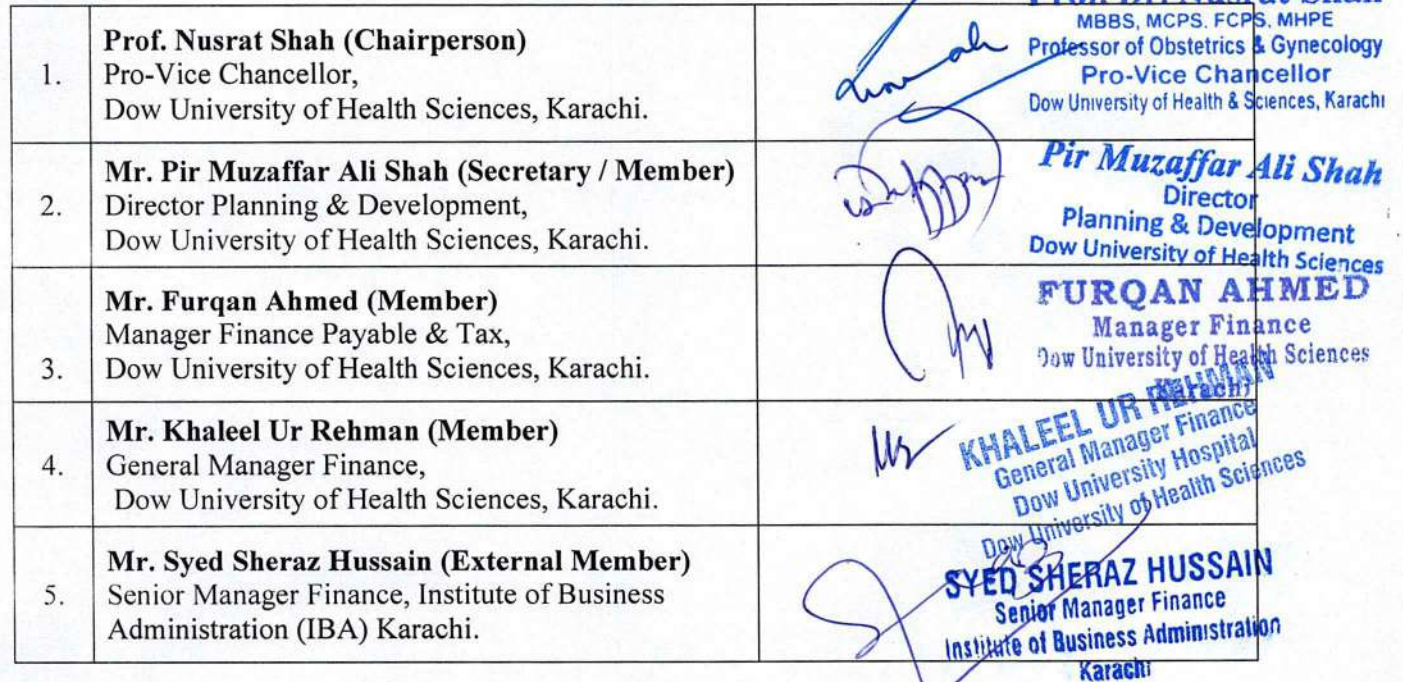 1.
Prof. Nusrat Shah (Chairperson)
Pro-Vice Chancellor,
Dow University of Health Sciences, Karachi.
MBBS, MCPS. FCPS. MHPE
Professor of Obstetrics & Gynecology
Pro-Vice Chancellor
Dow University of Health & Sciences, Karachi
2.
Mr. Pir Muzaffar Ali Shah (Secretary / Member)
Director Planning & Development,
Dow University of Health Sciences, Karachi.
Pir Muzaffar Ali Shah
Director
Planning & Development
Dow University of Health Sciences
3.
Mr. Furqan Ahmed (Member)
Manager Finance Payable & Tax,
Dow University of Health Sciences, Karachi.
FURQAN AHMED
Manager Finance
Dow University of Health Sciences
Karachi
4.
Mr. Khaleel Ur Rehman (Member)
General Manager Finance,
Dow University of Health Sciences, Karachi.
KHALEEL UR REHMAN
General Manager Finance
Dow University Hospital
Dow University of Health Sciences
5.
Mr. Syed Sheraz Hussain (External Member)
Senior Manager Finance, Institute of Business
Administration (IBA) Karachi.
SYED SHERAZ HUSSAIN
Senior Manager Finance
Institute of Business Administration
Karachi